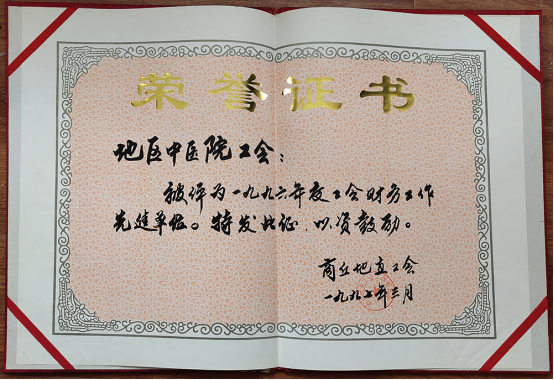 荣誉证书
地区中医院工会：
被评为一九九六年度工会财务工作
先进单位。特发此证，以资鼓励。
商丘地直工会
一九九七年三月